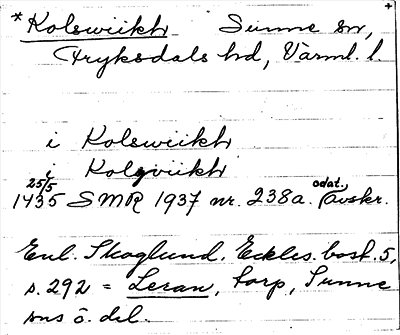 *Kolswiikh Sunne sn,
Fryksdals hd, Värml. l.
i Kolsweikh
i Kolgviikh
25/5 1435 SMR 1937 nr. 238a. odat., avskr.
Enl. Skoglund. Eckles. bost. 5,
s. 292 = Leran, torp, Sunne
sns ö. del.